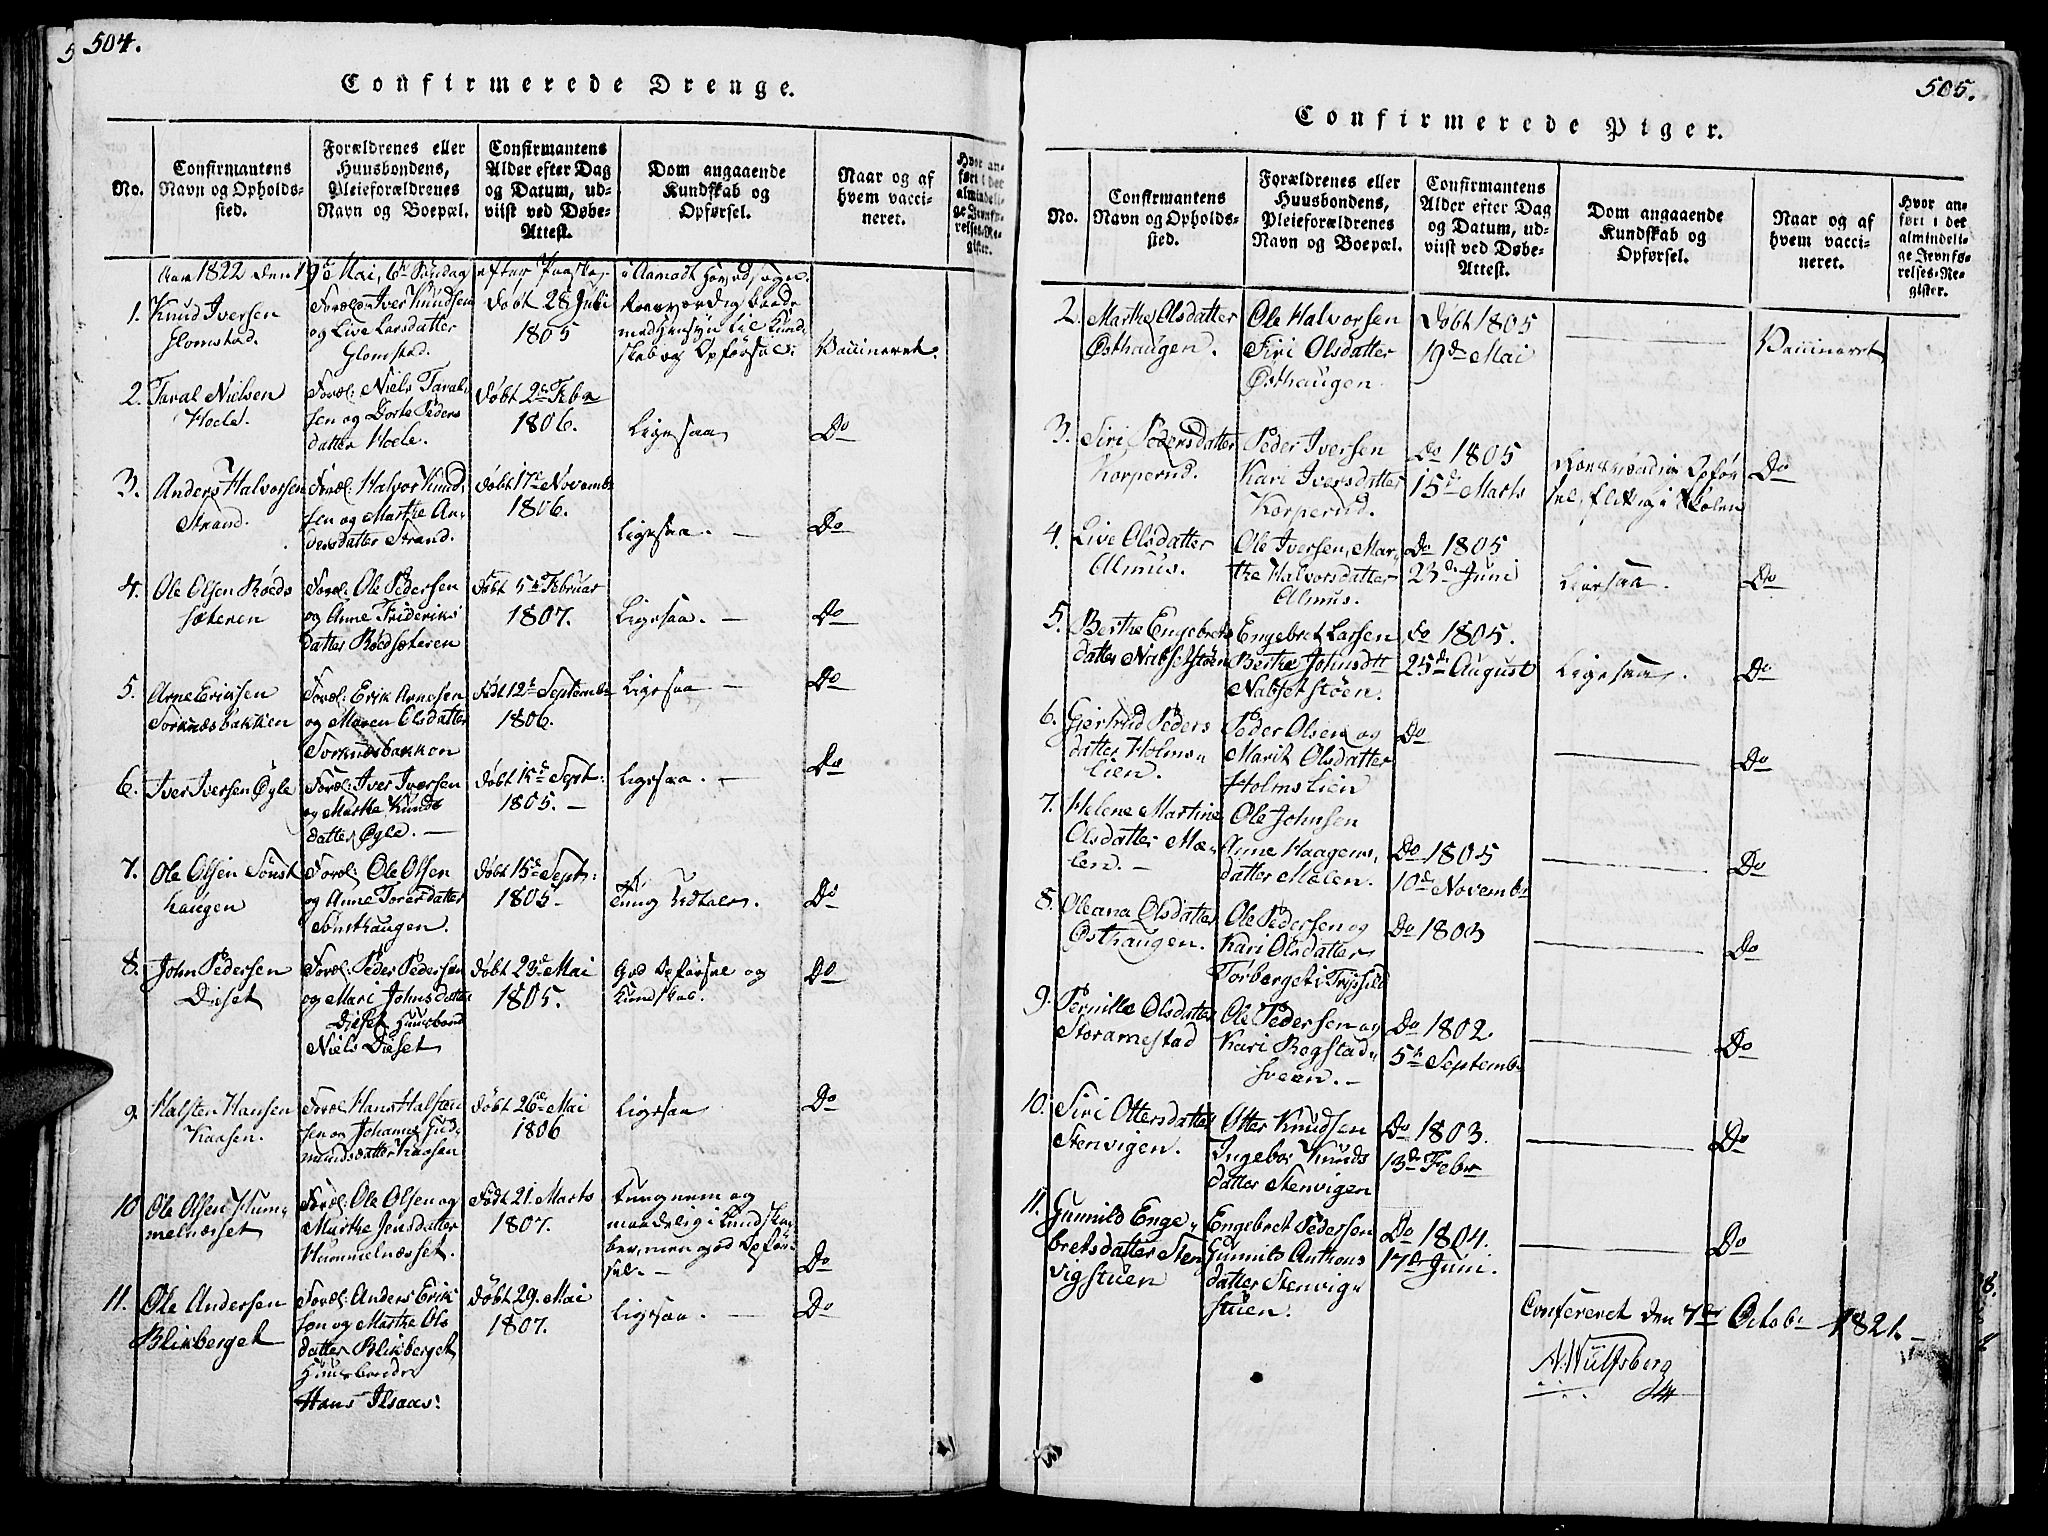 504.
Confirmerede Drenge.
No.
Confirmantens
Navn og Opholds-
sted.
Forældrenes eller
Huusbondens,
Pleieforældrenes
Navn og Boepæl.
Confirmantens
Alder efter Dag
og Datum, ud-
viist ved Døbe-
Attest.
Dom angaaende
Kundskab og
Opførsel.
Naar og af
hvem vacci-
neret.
Hvor an-
ført i det
almindeli-
ge Jevnfø-
relses-Re-
gister.
Aar 1822 den 19de Mai, 6te Søndag efter Paaske, i Aamodt Hovedsogn
1.
Knud Iversen
Glomstad.
Foræl: Iver Knudsen
og Live Larsdatter
Glomstad.
døbt 28 Juli
1805
med Hensyn til Kund-
skab og Opførsel.
Vaccineret.
2.
Taral Nielsen
Hoele.
Foræl: Niels Taral-
sen og Dorte Peders
datter Hoele.
Døbt 2de Febr
1806.
Ligesaa
Do
3.
Anders Halvorsen
Strand.
Foræl: Halvor Knud-
sen og Marthe An-
dersdatter Strand.
døbt 17de Novembr
1806.
Ligesaa. —
Do
4.
Ole Olsen Røeds
sæteren
Foræl: Ole Pedersen
og Anne Frideriks
datter Røedsæteren
Født 5te Februar
1807.
Ligesaa. —
Do
5.
Arne Eriksen
Sorknæsbakken
Foræl: Erik Arnesen
og Maren Olsdatter
Sorknæsbakken
Født 12te Septembr
1806.
Ligesaa —
Do
6.
Iver Iversen Øgle
Foræl: Iver Iversen
og Marthe Knuds
datter Øgle. —
døbt 15de Sept:
1805. —
Ligesaa. —
Do
7.
Ole Olsen Sønst
haugen
Foræl: Ole Olsen
og Anne Torersdatter
Sønsthaugen.
døbt 15de Sept:
1805. —
Do
8.
John Pedersen
Dieset
Foræl: Peder Pedersen
og Mari Johnsdatter
Dieset Huusbond
Niels Dieset
døbt 23de Mai
1805.
God Opførsel og
Kundskab.
Do
9.
Halsten Hansen
Kaasen.
Foræl: Hans Halsten
sen og Johanne Gud-
mundsdatter Kaasen
døbt 26de Mai
1806
Ligesaa
Do
10
Ole Olsen Hum-
melnæsset
Foræl: Ole Olsen og
Marthe Jensdatter
Hummelnæsset.
Født 21. Marts
1807.
Tungnem og
maadelig i Kundska-
ber, men god Opfør-
sel. —
Do
11.
Ole Andersen
Blikberget
Foræl: Anders Erik
sen og Marthe Ols
datter Blikberget
Huusbonde
Hans Ilsaas.
Døbt 29. Mai
1807.
Ligesaa. —
Do
505.
Confirmerede Piger.
No.
Confirmantens
Navn og Opholds-
sted.
Forældrenes eller
Huusbondens,
Pleieforældrenes
Navn og Boepæl.
Confirmantens
Alder efter Dag
og Datum, ud-
viist ved Døbe-
Attest.
Dom angaaende
Kundskab og
Opførsel.
Naar og af
hvem vacci-
neret.
Hvor an-
ført i det
almindeli-
ge Jevnfø-
relses-Re-
gister.
2.
Marthe Olsdatter
Østhaugen.
Ole Halvorsen
Siri Olsdatter
Østhaugen.
Døbt 1805
19de Mai
Vaccineret
3.
Siri Pedersdatter
Korperud.
Peder Iversen
Kari Iversdatter
Korperud.
Do 1805
15de Marts
Opfør
sel, flittig i Skolen
Do
4.
Live Olsdatter
Almus.
Ole Iversen, Mar-
the Halvorsdatter
Almus.
Do 1805
23de Juni
Ligesaa.
Do
5.
Berthe Engebrets
datter Nabsetstøen
Engebret Larsen
Berthe Johnsdtt
Nabsetstøen.
do 1805.
25de August
Ligesaa.
Do
6.
Giertrud Peders
datter Holms-
lien.
Peder Olsen og
Marit Olsdatter
Holmslien
Do
Do
7.
Helene Martine
Olsdatter Mæ-
len. —
Ole Johnsen
Anne Haagens,
datter Mælen.
Do 1805
10de Novembr
Do
8.
Oleana Olsdatter
Østhaugen.
Ole Pedersen og
Kari Olsdatter
Torberget i Trysild
Do 1803
Do
9.
Pernille Olsdatter
Storamestad
Ole Pedersen og
Kari Rogstad-
sveen. —
Do 1802
5te Septembr
Do
10.
Siri Ottersdatter
Stenvigen.
Otter Knudsen
Ingebor Knuds
datter Stenvigen
Do 1803.
13de Febr
Do
11.
Gunnild Enge-
bretsdatter Sten
vigstuen
Engebret Pedersen
Gunnild Anthons
datter Stenvig-
stuen.
Do 1804.
17de Juni.
Do
Confereret den 7de Octobr 1821. —
N. Wulfsberg